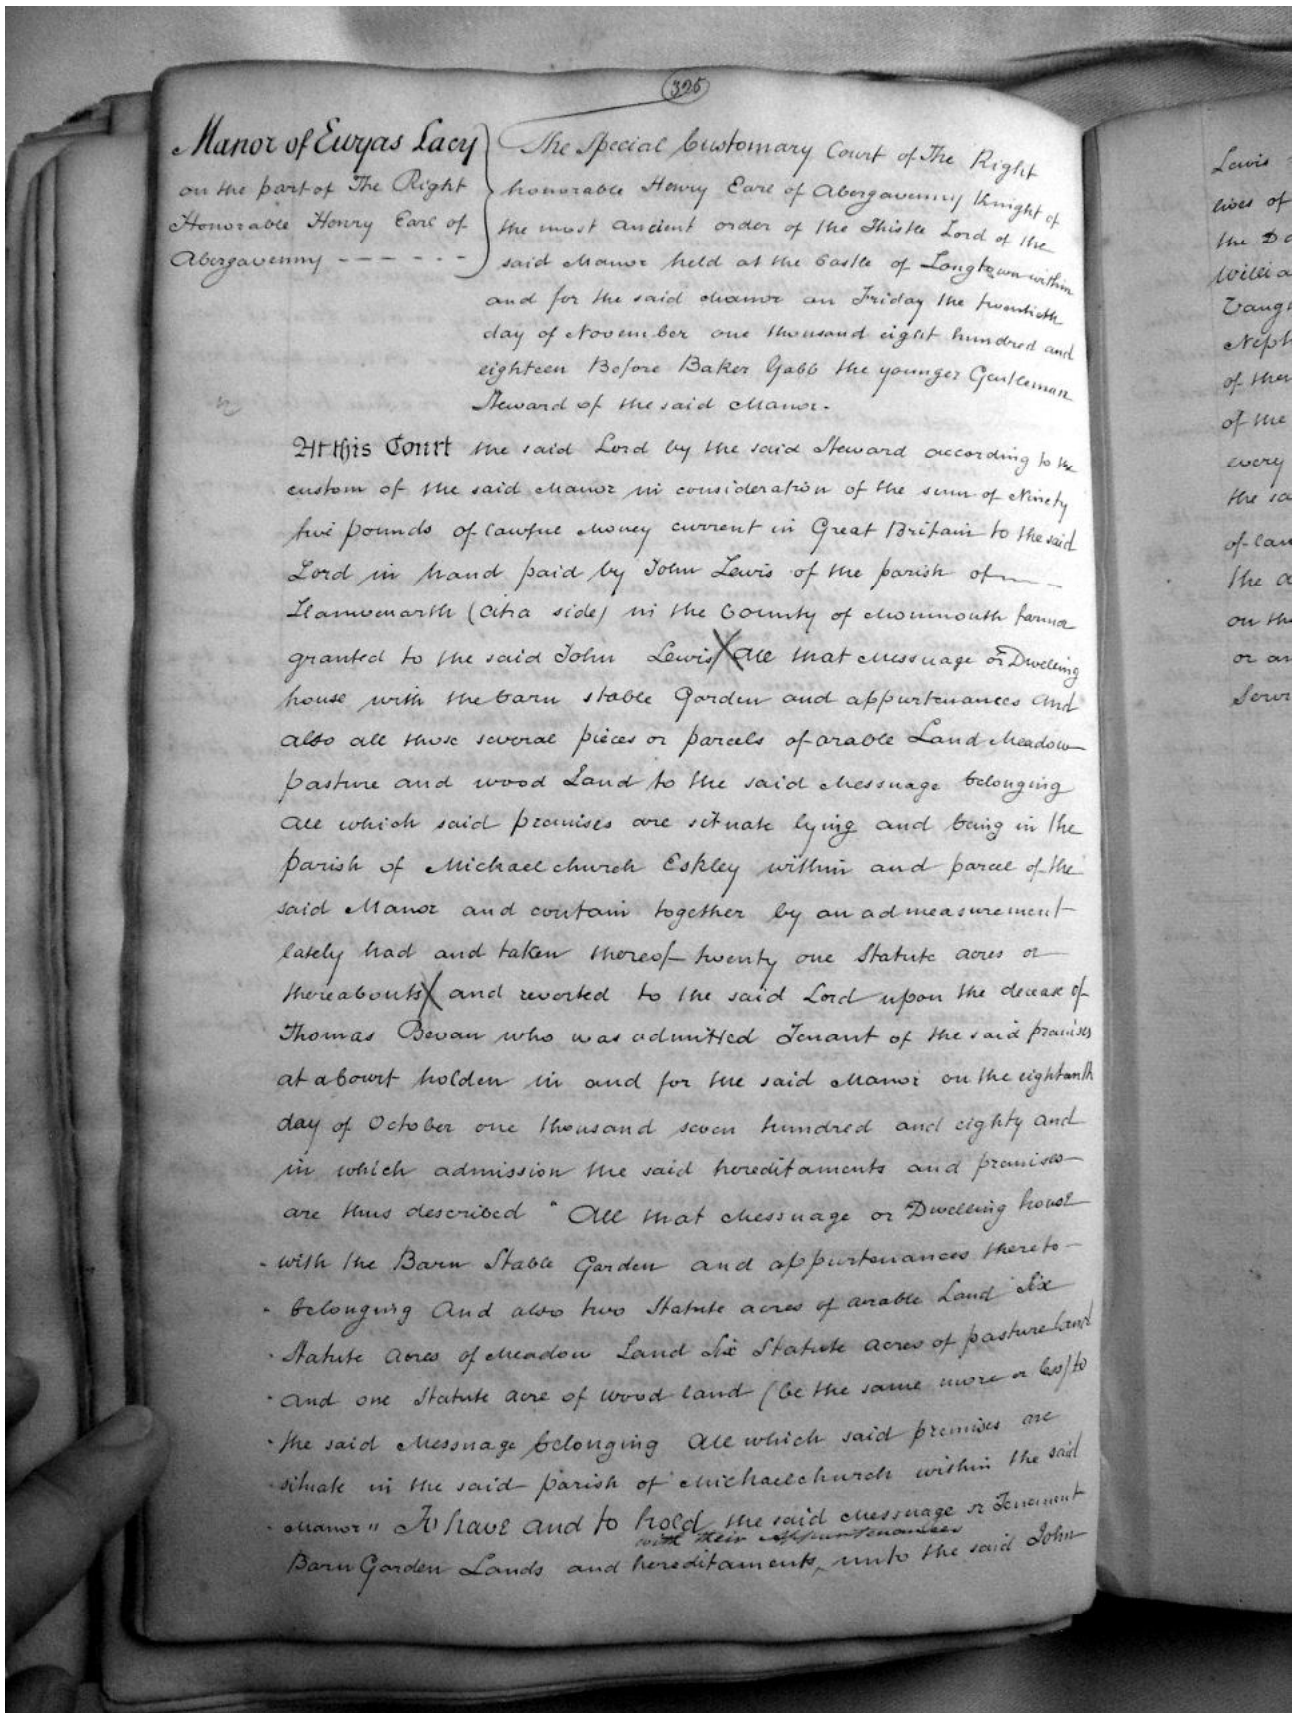 325
Manor of Ewyas Lacy
on the part of The Right
Honorable Henry Earl of
Abergavenny - - - - - -
The Special Customary Court of The Right
honorable Henry Earl of Abergavenny Knight of
the most ancient order of the Thistle Lord of the
said Manor held at the Castle of Longtown within
and for the said Manor on Friday the twentieth
day of November one thousand eight hundred and
eighteen Before Baker Gabb the younger Gentleman
Steward of the said Manor.
At this Court the said Lord by the said Steward according to the
custom of the said Manor in consideration of the sum of Ninety
two pounds of lawful Money current in Great Britain to the said
Lord in hand paid by John Lewis of the parish of
Llanwenarth (Citra side) in the County of Monmouth farmer
granted to the said John Lewis X All that Messuage or Dwelling
house with the barn stable Garden and appurtenances And
also all those several pieces or parcels of arable Land Meadow
pasture and wood Land to the said Messuage belonging
All which said premises are situate lying and being in the
parish of Michaelchurch Eskley within and parcel of the
said Manor and contain together by an admeasurement
lately had and taken thereof twenty one Statute acres or
thereabouts X and reverted to the said Lord upon the decease of
Thomas Bevan who was admitted Tenant of the said premises
at a Court holden in and for the said Manor on the eighteenth
day of October one thousand seven hundred and eighty and
in which admission the said hereditaments and premises
are thus described " All that Messuage or Dwelling house
" with the Barn Stable Garden and appurtenances thereto
" belonging And also two Statute acres of arable Land Six
" Statute acres of Meadow Land Six Statute acres of pasture land
" And one Statute acre of wood land (be the same more or less) to
" the said Messuage belonging All which said premises are
" situate in the said parish of Michaelchurch within the said
" Manor" To have and to hold the said Messuage or Tenement
with their Appurtenances
Barn Garden Lands and hereditaments ^ unto the said John
Lewis
lives of
the
of the
every
the
on the